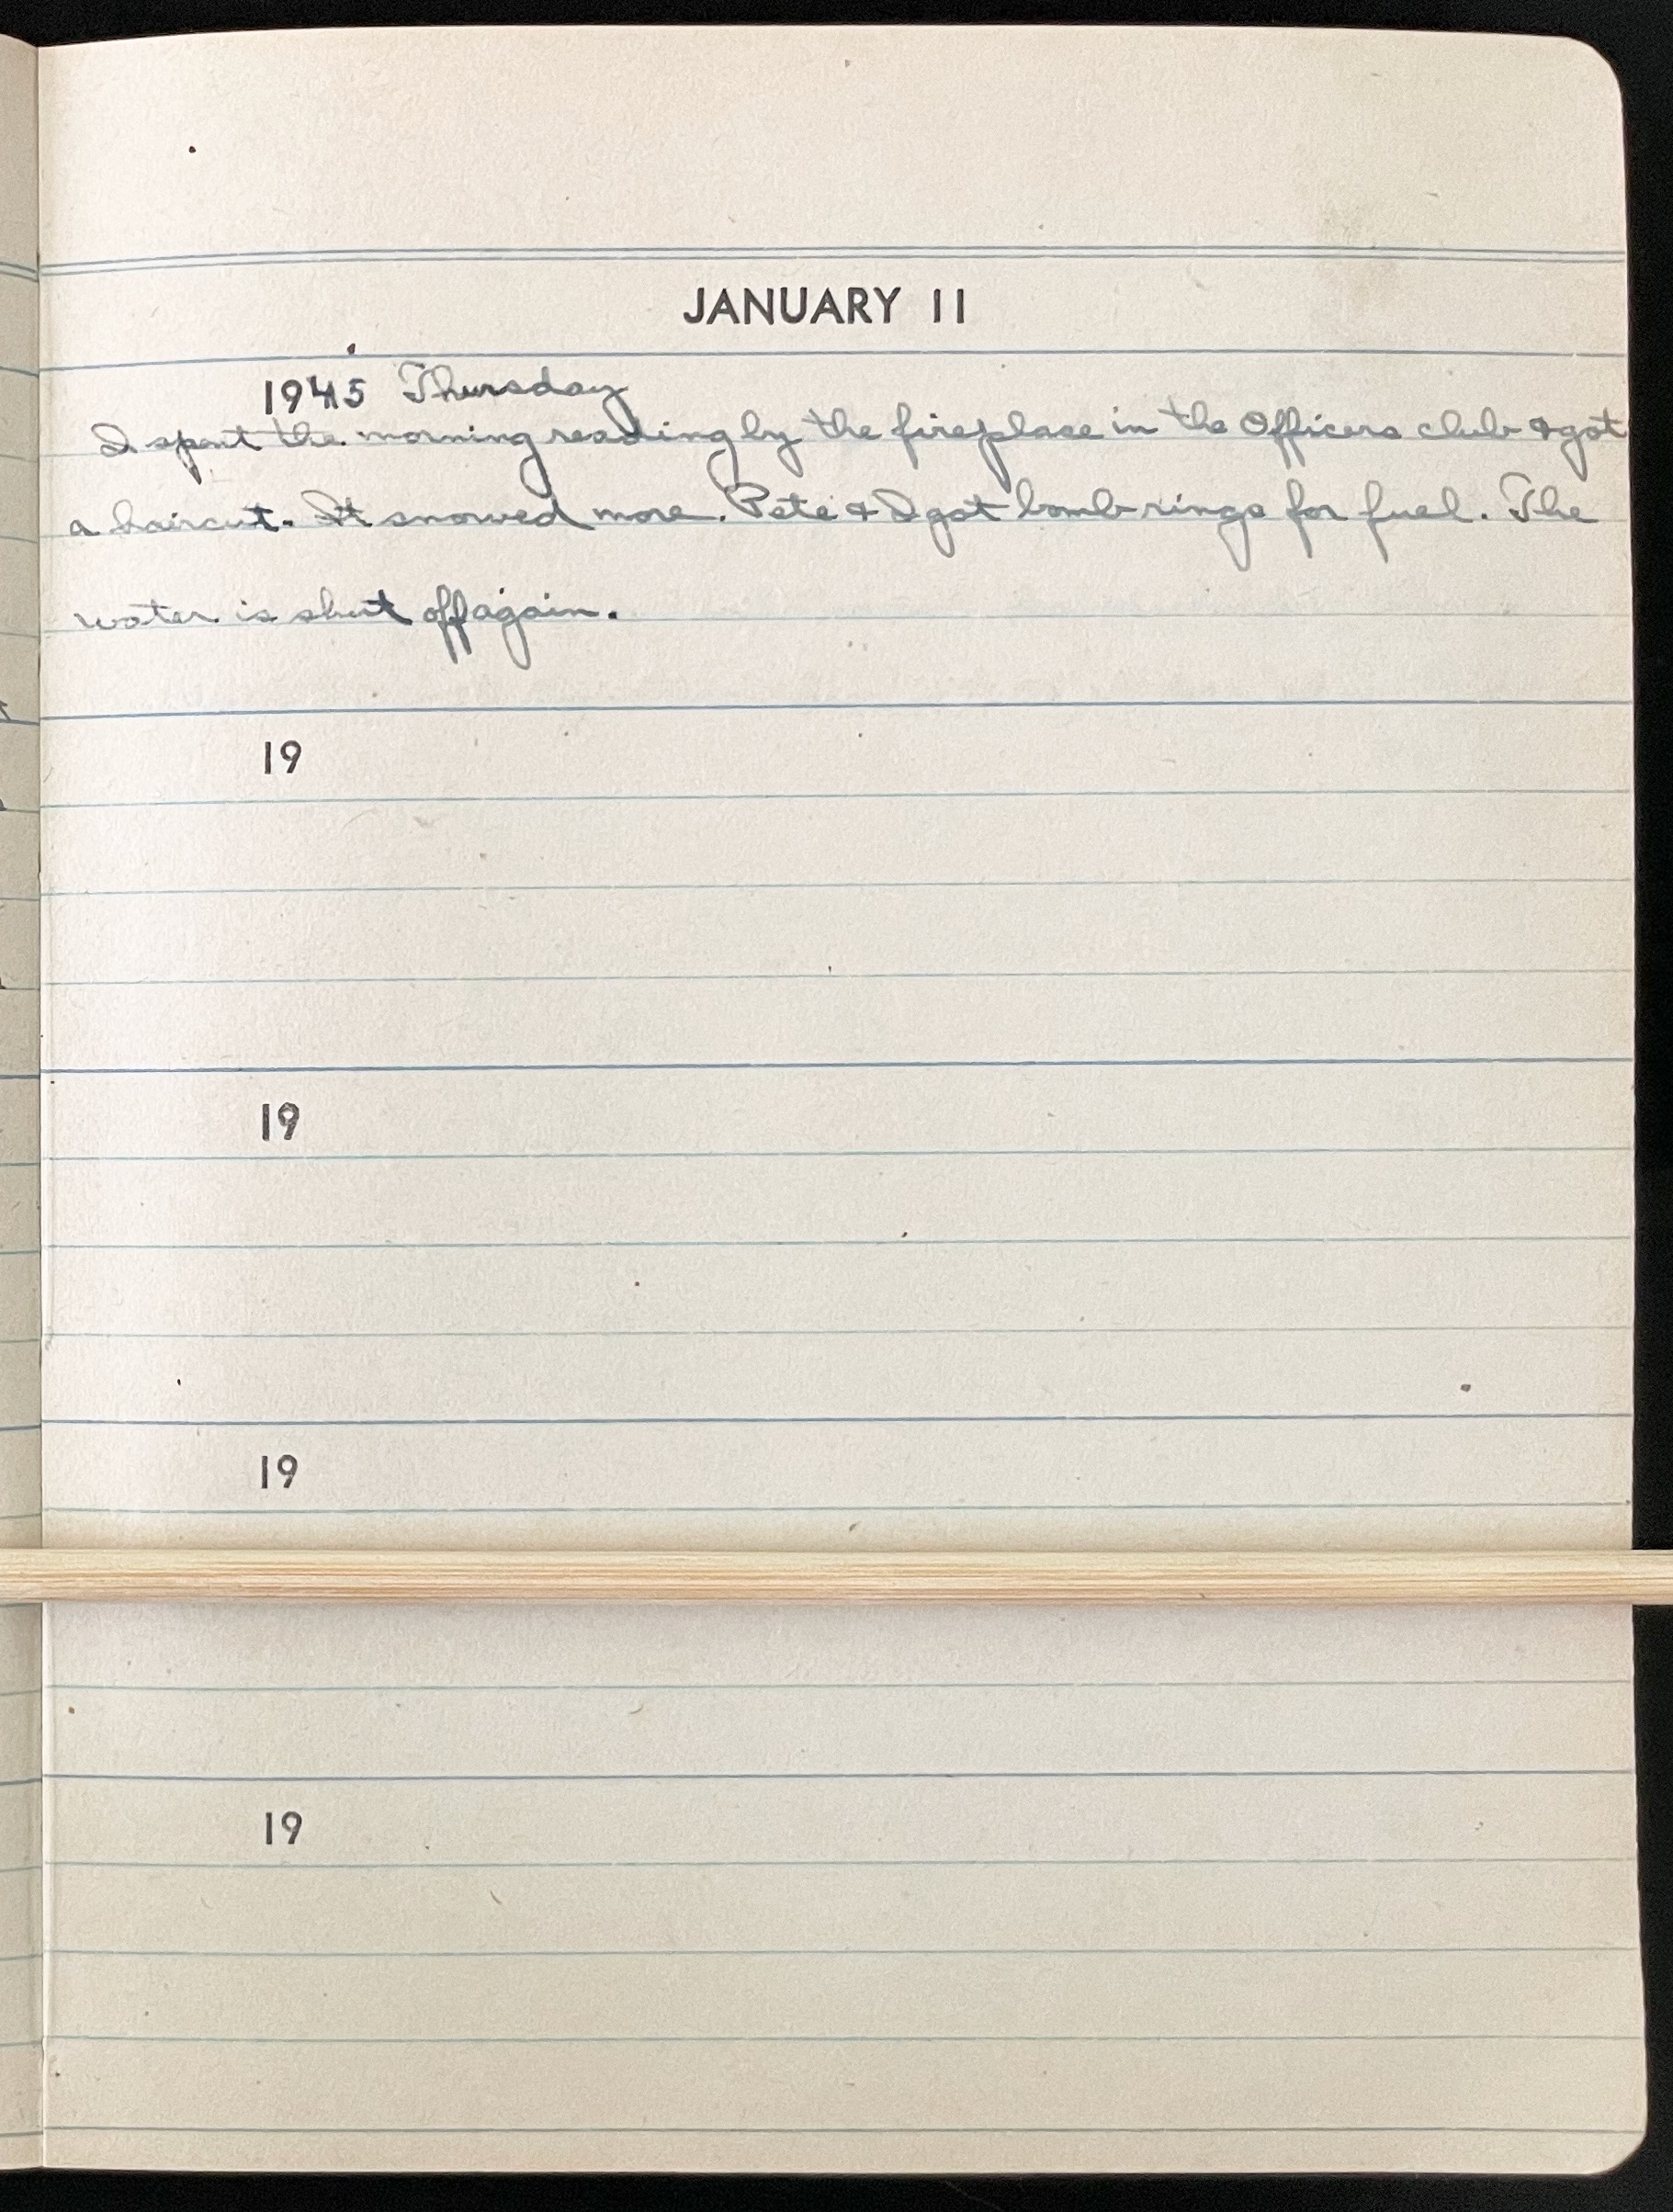 JANUARY 11
1945 Thursday
I spent the morning reading by the fireplace in the Officers club & got
a haircut. It snowed more. Pete & I got bomb rings for fuel. The
water is shut off again.
19
19
19
19